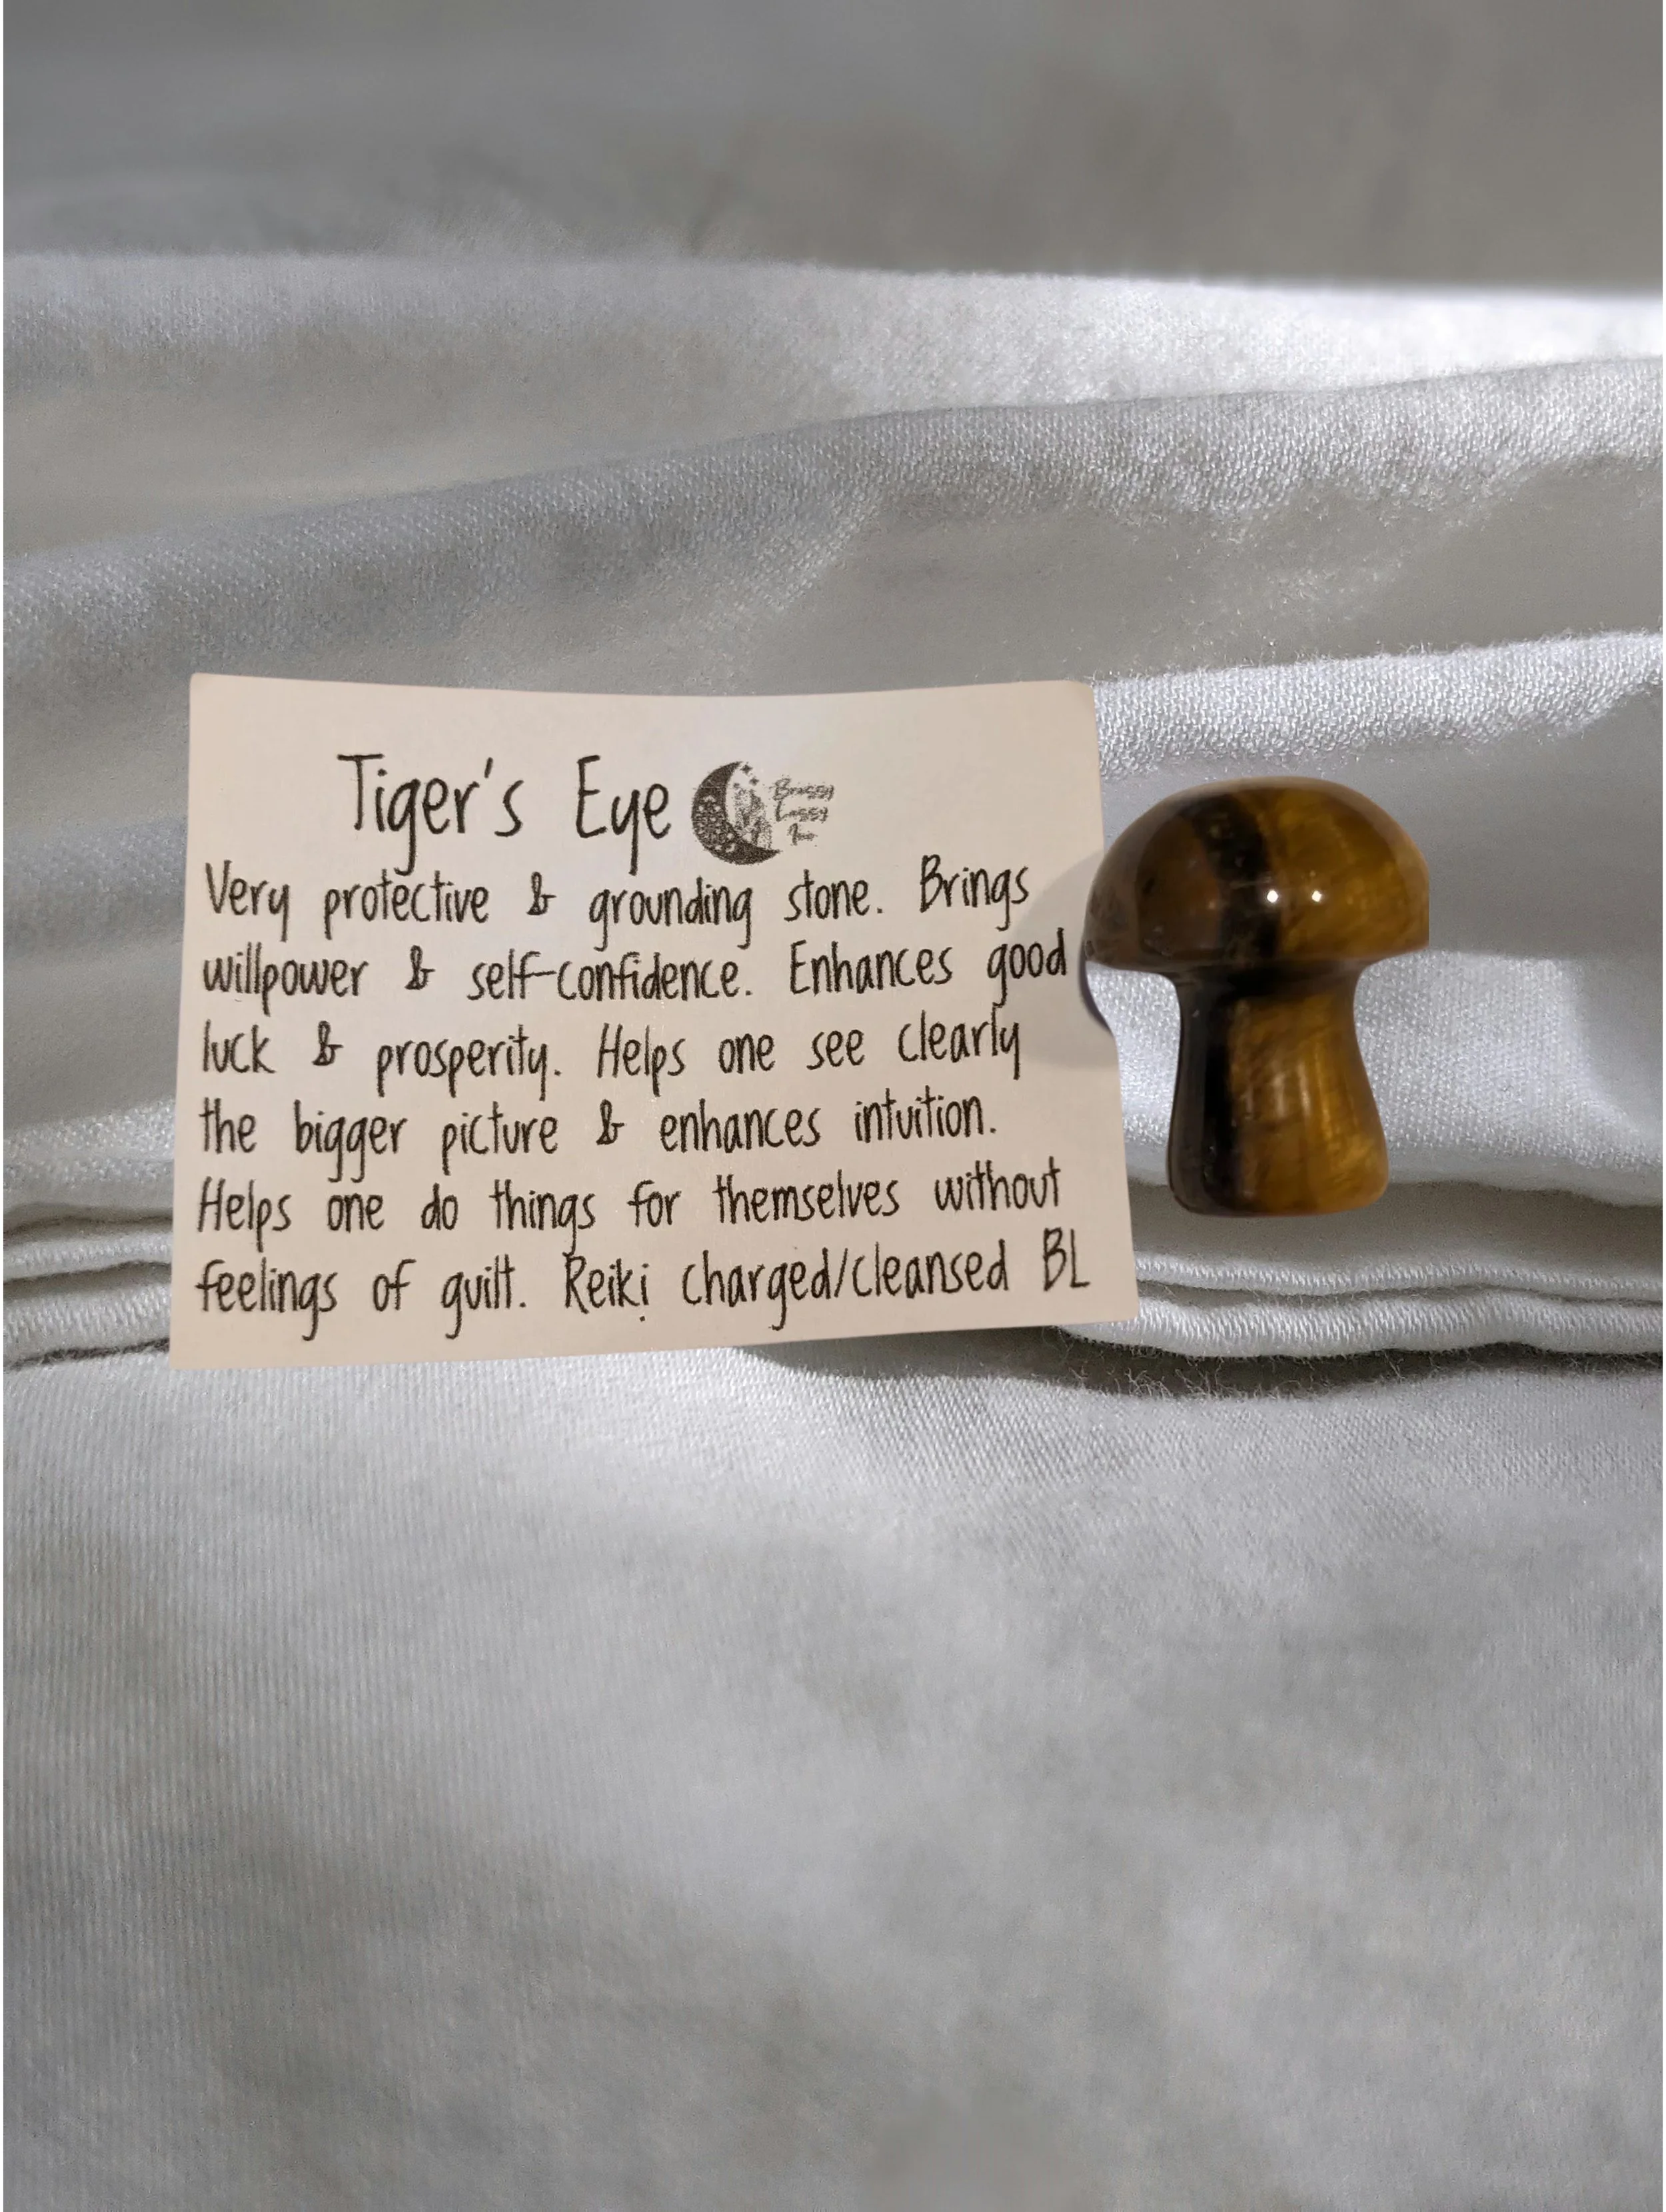 Tiger's Eye
Very protective & grounding stone. Brings
willpower & self-confidence. Enhances good
luck & prosperity. Helps one see clearly
the bigger picture & enhances intuition.
Helps one do things for themselves without
feelings of guilt. Reiki charged/cleansed BL